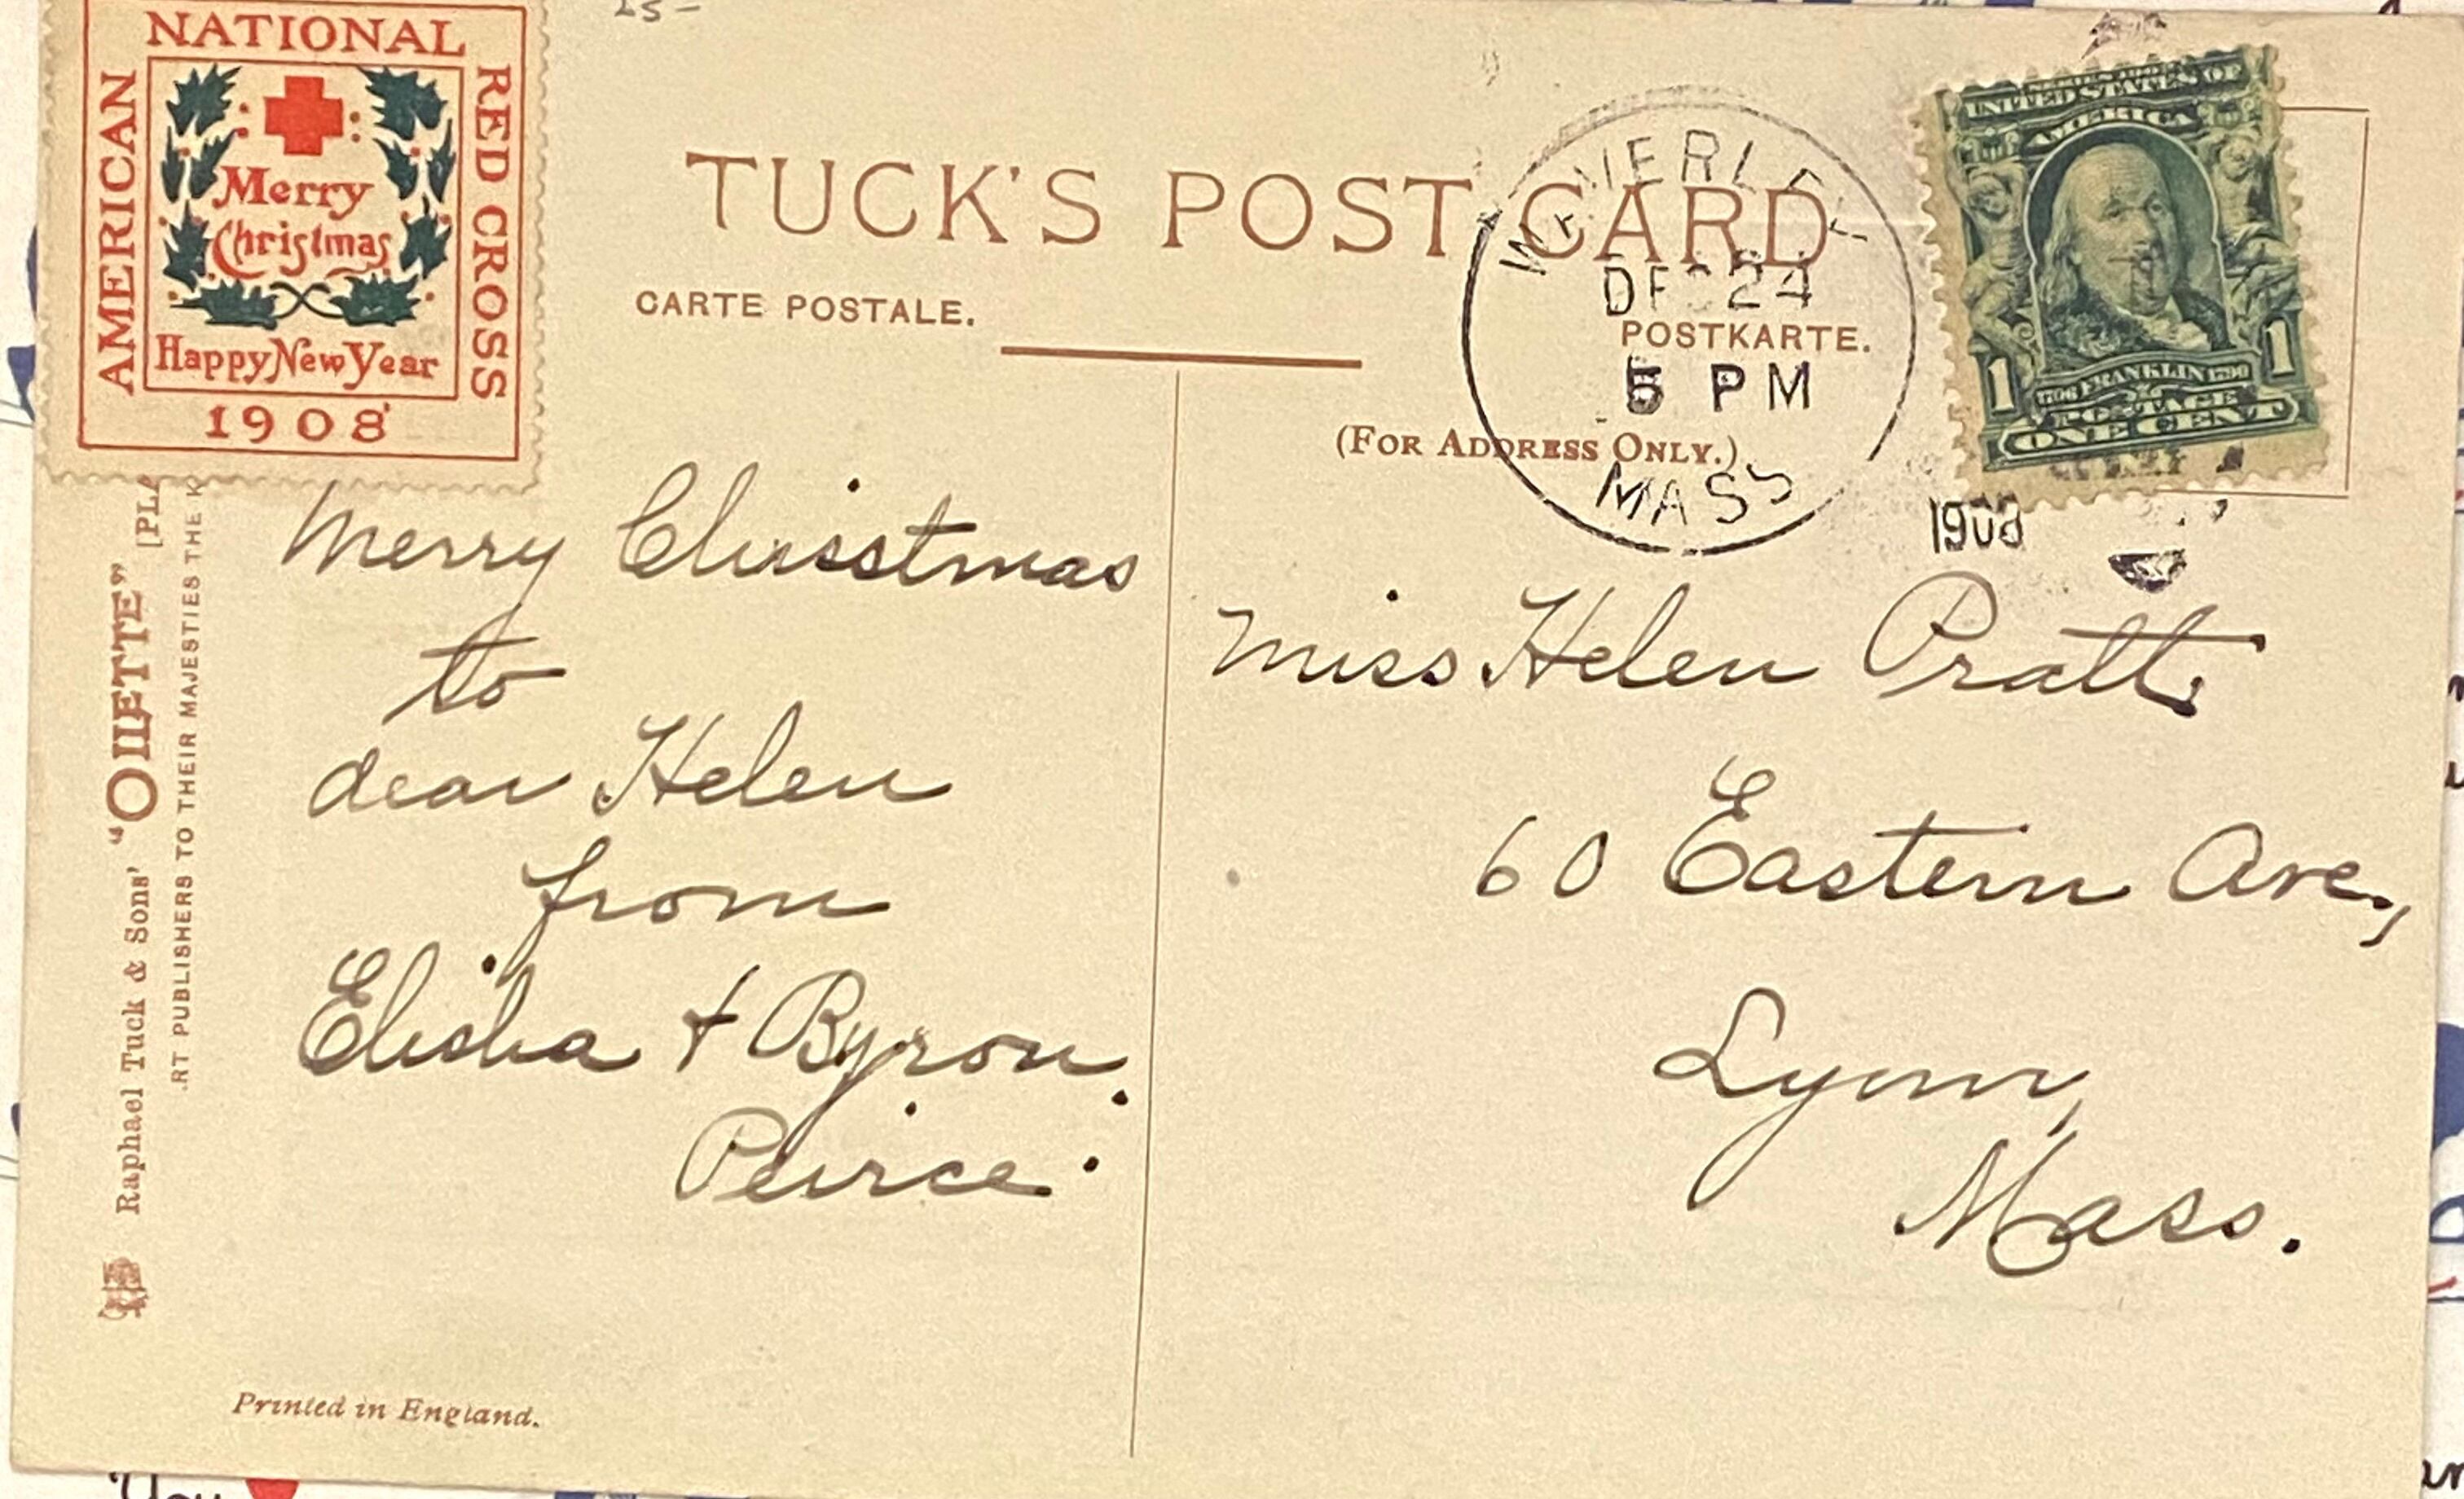 25-
AMERICAN
NATIONAL
RED CROSS
Merry
Christmas
Happy New Year
1908
TUCK'S POST CARD
CARTE POSTALE.
POSTKARTE.
(FOR ADDRESS ONLY.)
WAVERLEY
DEC 24
5 PM
MASS
1908
UNITED STATES OF
AMERICA
1706 FRANKLIN 1790
POSTAGE
1 1
ONE CENT
Merry Christmas
to
dear Helen
from
Elisha + Byron.
Peirce.
Miss Helen Pratt.
60 Eastern Ave.,
Lynn,
Mass.
Raphael Tuck & Sons' "OILETTE" [PLA
RT PUBLISHERS TO THEIR MAJESTIES THE K
Printed in England.
You